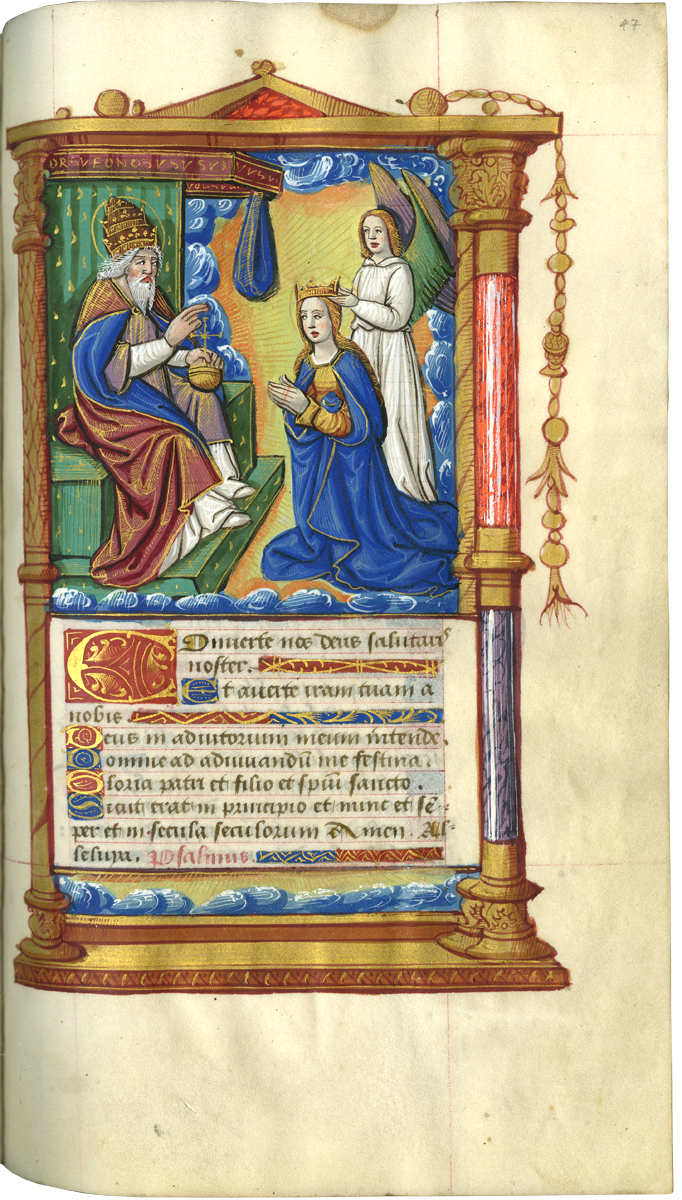 47
Converte nos deus salutaris
noster.
Et averte iram tuam a
nobis.
Deus in adiutorium meum intende.
Domine ad adiuvandū me festina.
Gloria patri et filio et spiuī sancto.
Sicut erat in principio et nunc et sē-
per et in secula seculorum Amen. Al-
leluya. Psalmus.